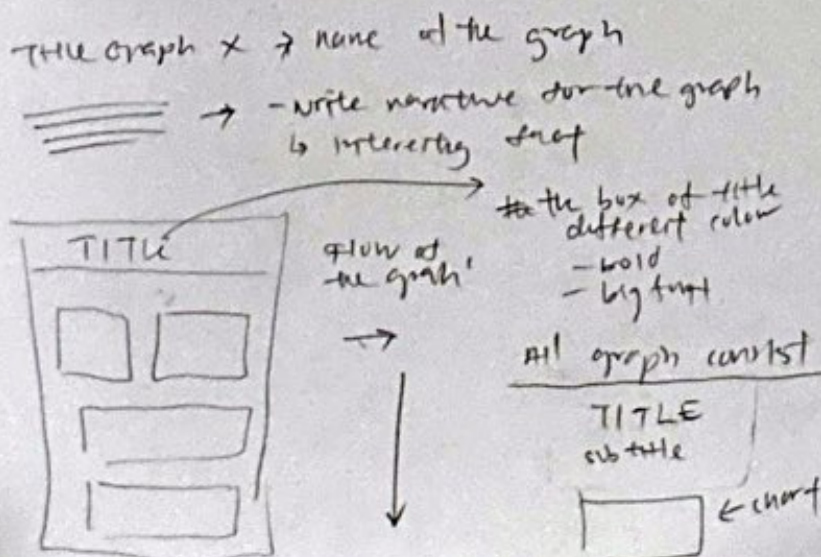 Title Graph X → name of the graph
→ - Write narrative for the graph
↳ interesting fact
TITLE
Flow of the graph
→
the box of title different colour
- bold
- big font
All graph consist
TITLE
subtitle
← chart